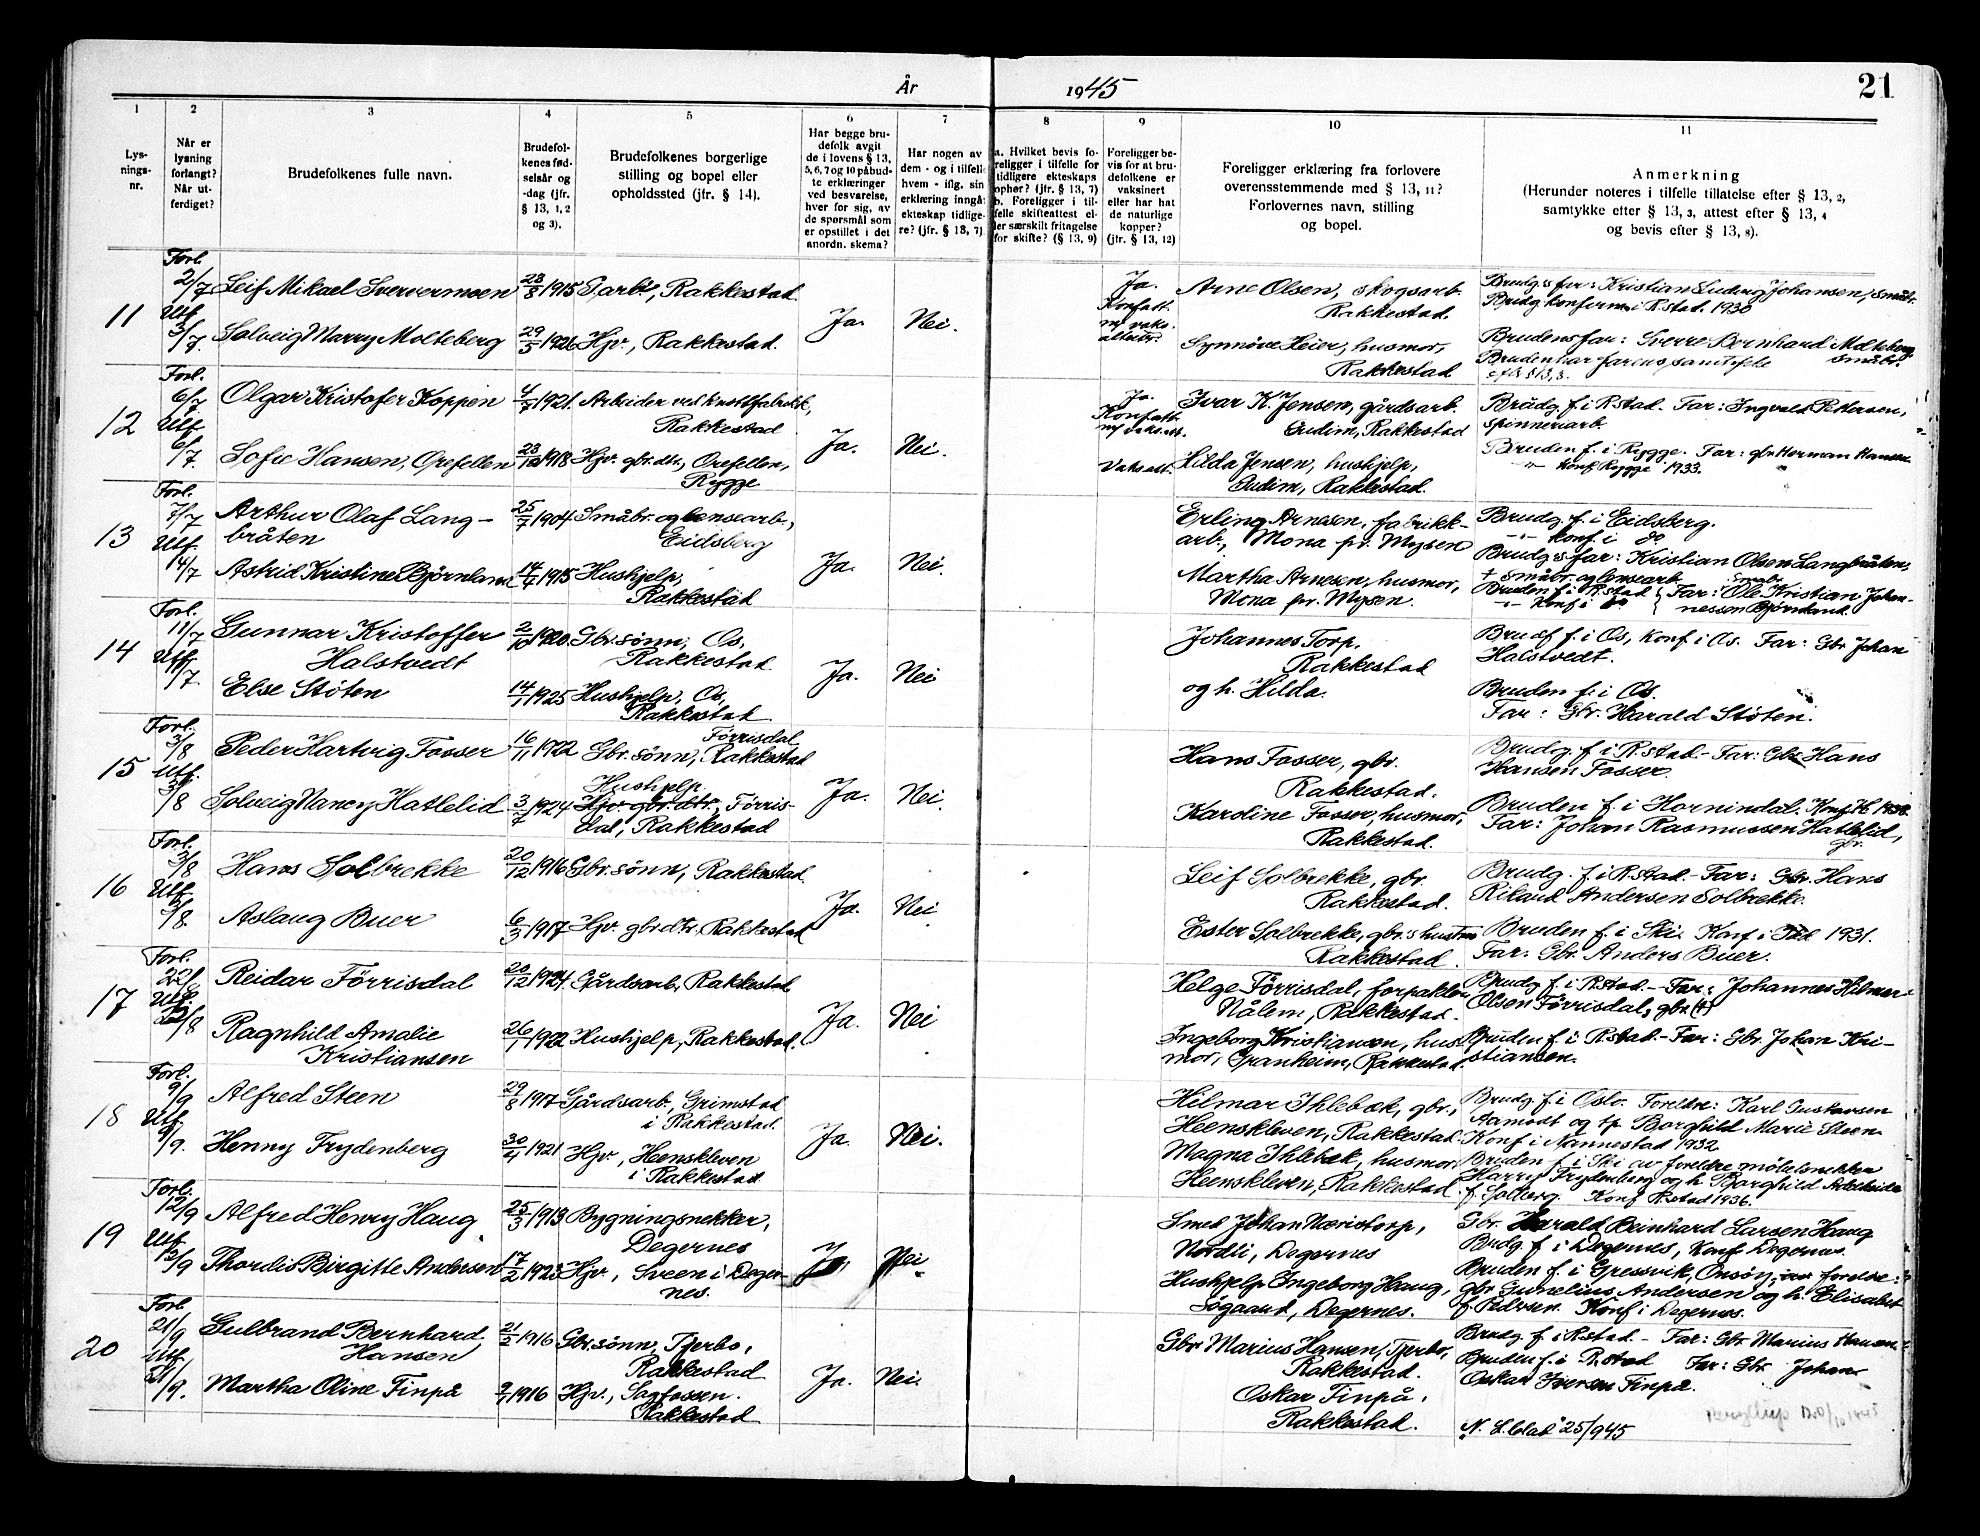 År 1945
21
1
2
3
4
5
6
7
8
9
10
11
Lys-
nings-
nr.
Når er
lysning
forlangt?
Når ut-
ferdiget?
Brudefolkenes fulle navn.
Brudefol-
kenes fød-
selsår og
-dag (jfr.
§ 13, 1, 2
og 3).
Brudefolkenes borgerlige
stilling og bopel eller
opholdssted (jfr. § 14).
Har begge bru-
defolk avgit
de i lovens § 13,
5, 6, 7 og 10 påbud-
te erklæringer
ved besvarelse,
hver for sig, av
de spørsmål som
er opstillet i det
anordn. skema?
Har nogen av
dem - og i tilfelle
hvem - iflg. sin
erklæring inngå
ekteskap tidlige-
re? (jfr. § 13, 7)
a. Hvilket bevis fo-
religger i tilfelle for
tidligere ekteskaps
ophør? (jfr. § 13, 7)
b. Foreligger i til-
felle skifteattest el-
ler særskilt fritagelse
for skifte? (§ 13, 9)
Foreligger be-
vis for at bru-
defolkene er
vaksinert
eller har hat
de naturlige
kopper?
(jfr. § 13, 12)
Foreligger erklæring fra forlovere
overensstemmende med § 13, 11?
Forlovernes navn, stilling
og bopel.
Anmerkning
(Herunder noteres i tilfelle tillatelse efter § 13, 2,
samtykke efter § 13, 3, attest efter § 13, 4
og bevis efter § 13, 8).
11
Forl.
2/7
Utf.
3/7
Leif Mikael Sververmoen
23/8 1915
arb., Rakkestad
Solveig Marry Molteberg
29/5 1926
Hjv., Rakkestad.
Ja.
Nei.
Ja.
Konfatt.
Arne Olsen, skogsarb.
Rakkestad.
Synnöve Heier, husmor,
Rakkestad
Brudg.s far: Kristian Ludvig Johansen, småbr.
Brudg. konferm. i R.stad. 1930
Brudens far: Sverre Bernhard Molteberg
småbr.
Bruden har farens samtykke
efter § 13, 3.
12
Forl.
6/7
Utf.
6/7
Olgar Kristofer Koppen
4/7 1921.
Arbeider ved knottfabrikk,
Rakkestad
Sofie Hansen, Orefellen
23/12 1918
Hjv. gbr.dtr., Orefellen,
Rygge
Ja.
Nei.
Ja.
Konfatt.
Vaks.att.
Ivar K. Jensen, gårdsarb.
Gudim, Rakkestad
Hilda Jensen, hushjelp,
Gudim, Rakkestad.
Brudg. f. i R.stad. Far: Ingvald Pettersen,
spinneriarb.
Bruden f. i Rygge. Far: gbr Herman Hansen
-"- Konf. Rygge 1933.
13
Forl.
7/7
Utf.
14/7
Arthur Olaf Lang-
bråten
25/7 1904
Småbr. og lensearb.,
Eidsberg
Astrid Kristine Björnland
14/7 1915
Hushjelp,
Rakkestad
Ja.
Nei.
Erling Arnesen, fabrikk-
arb., Mona pr. Mysen
Martha Arnesen, husmor,
Mona pr. Mysen.
Brudg. f. i Eidsberg.
-"- konf. i do
Brudg.s far: Kristian Olsen Langbråten,
+ Småbr. og lensearb.
Bruden f. i R.stad { Far: Småbr. Ole Kristian Johan-
-"- konf. i do { nessen Björnland.
14
Forl.
11/7
Utf.
11/7.
Gunnar Kristoffer
Halstvedt
2/10 1920
Gbr.sönn, Os,
Rakkestad
Else Stöten
14/7 1925
Hushjelp, Os,
Rakkestad
Ja.
Nei
Johannes Torp,
Rakkestad
og h. Hilda.
Brudg f. i Os, konf i Os. Far: Gbr Johan
Halstvedt.
Bruden f. i Os.
Far: Gbr. Harald Stöten.
15
Forl.
3/8
Utf.
3/8
Peder Hartvig Fosser
16/11 1922
Förrisdal
Gbr.sönn, Rakkestad
Solveig Nancy Hatlelid
3/7 1924
Hushjelp
Hjv. gbr.dtr., Förris-
dal, Rakkestad
Ja.
Nei.
Hans Fosser, gbr.
Rakkestad.
Karoline Fosser, husmor,
Rakkestad.
Brudg. f. i R.stad.- Far: Gbr Hans
Hansen Fosser.
Bruden f. i Hornindal. Konf. H. 1938.
Far: Johan Rasmussen Hatlelid,
gbr.
16
Forl.
3/8
Utf.
3/8.
Hans Solbrekke
20/12 1916
Gbr.sönn, Rakkestad.
Aslaug Buer
6/3 1917
Hjv. gbr.dtr. Rakkestad
Ja.
Nei
Leif Solbrekke, gbr.
Rakkestad.
Ester Solbrekke, gbr.s hustru
Rakkestad.
Brudg. f. i R.stad.- Far: Gbr. Hans
Rikard Andersen Solbrekke.
Bruden f. i Ski. Konf. i Ski 1931.
Far: Gbr. Anders Buer.
17
Forl.
22/8
Utf.
22/8
Reidar Förrisdal
20/12 1924
Gårdsarb., Rakkestad
Ragnhild Amalie
Kristiansen
26/1 1922
Hushjelp, Rakkestad.
Ja.
Nei
Helge Förrisdal, forpakter
Nålem, Rakkestad.
Ingeborg Kristiansen, hus-
mor, Granheim, Rakkestad.
Brudg f. i R.stad.-- Far: Johannes Hilmer
Olsen Förrisdal, gbr (†)
Bruden f. i R.stad.- Far: Gbr. Johan Kri-
stiansen.
18
Forl.
9/9
Utf.
9/9.
Alfred Steen
29/8 1917
Gårdsarb., Grimstad
i Rakkestad.
Henny Frydenberg
30/4 1921
Hjv., Heenskleven
i Rakkestad
Ja.
Nei.
Hilmar Ihlebæk, gbr.,
Heenskleven, Rakkestad
Magna Ihlebæk, husmor
Heenskleven, Rakkestad
Brudg. f. i Oslo. Foreldre: Karl Gustavsen
Aamodt og tp Borghild Marie Steen
Konf i Nannestad 1932
Bruden f. i Ski av foreldre möbelsnekker
Harry Frydenberg og h. Borghild
f. Solberg. Konf. R.stad 1936.
19
Forl.
12/9
Utf.
12/9
Alfred Henry Haug
25/3 1913
Bygningsnekker,
Degernes
Thordis Birgitte Andersen
17/2 1923
Hjv., Sveen i Deger-
nes.
Ja
Nei
Smed Johan Næristorp,
Nordli, Degernes
Hushjelp Ingeborg Haug,
Søgaard, Degernes.
Gbr. Harald Reinhard Larsen Haug
Brudg. f i Degernes, Konf Degernes.
Bruden f. i Gressvik, Onsøy, av foreldre:
gbr Gunelius Andersen og h. Elisabet
f. Pedersen. Konf i Degernes.
20
Forl.
21/9
Utf.
21/9.
Gulbrand Bernhard
Hansen
21/2 1916
Gbr.sönn, Tjerbo,
Rakkestad
Martha Oline Finpå
9/7 1916
Hjv., Sagfossen.
Rakkestad
Ja.
Nei.
Gbr Marius Hansen, Tjerbo,
Rakkestad.
Oskar Finpå,
Rakkestad.
Brudg. f. i R.stad - Far: Gbr Marius Hansen
Bruden f. i R.stad Far: Gbr Johan
Oskar Iversen Finpå.
N. L.blad 25/9 45